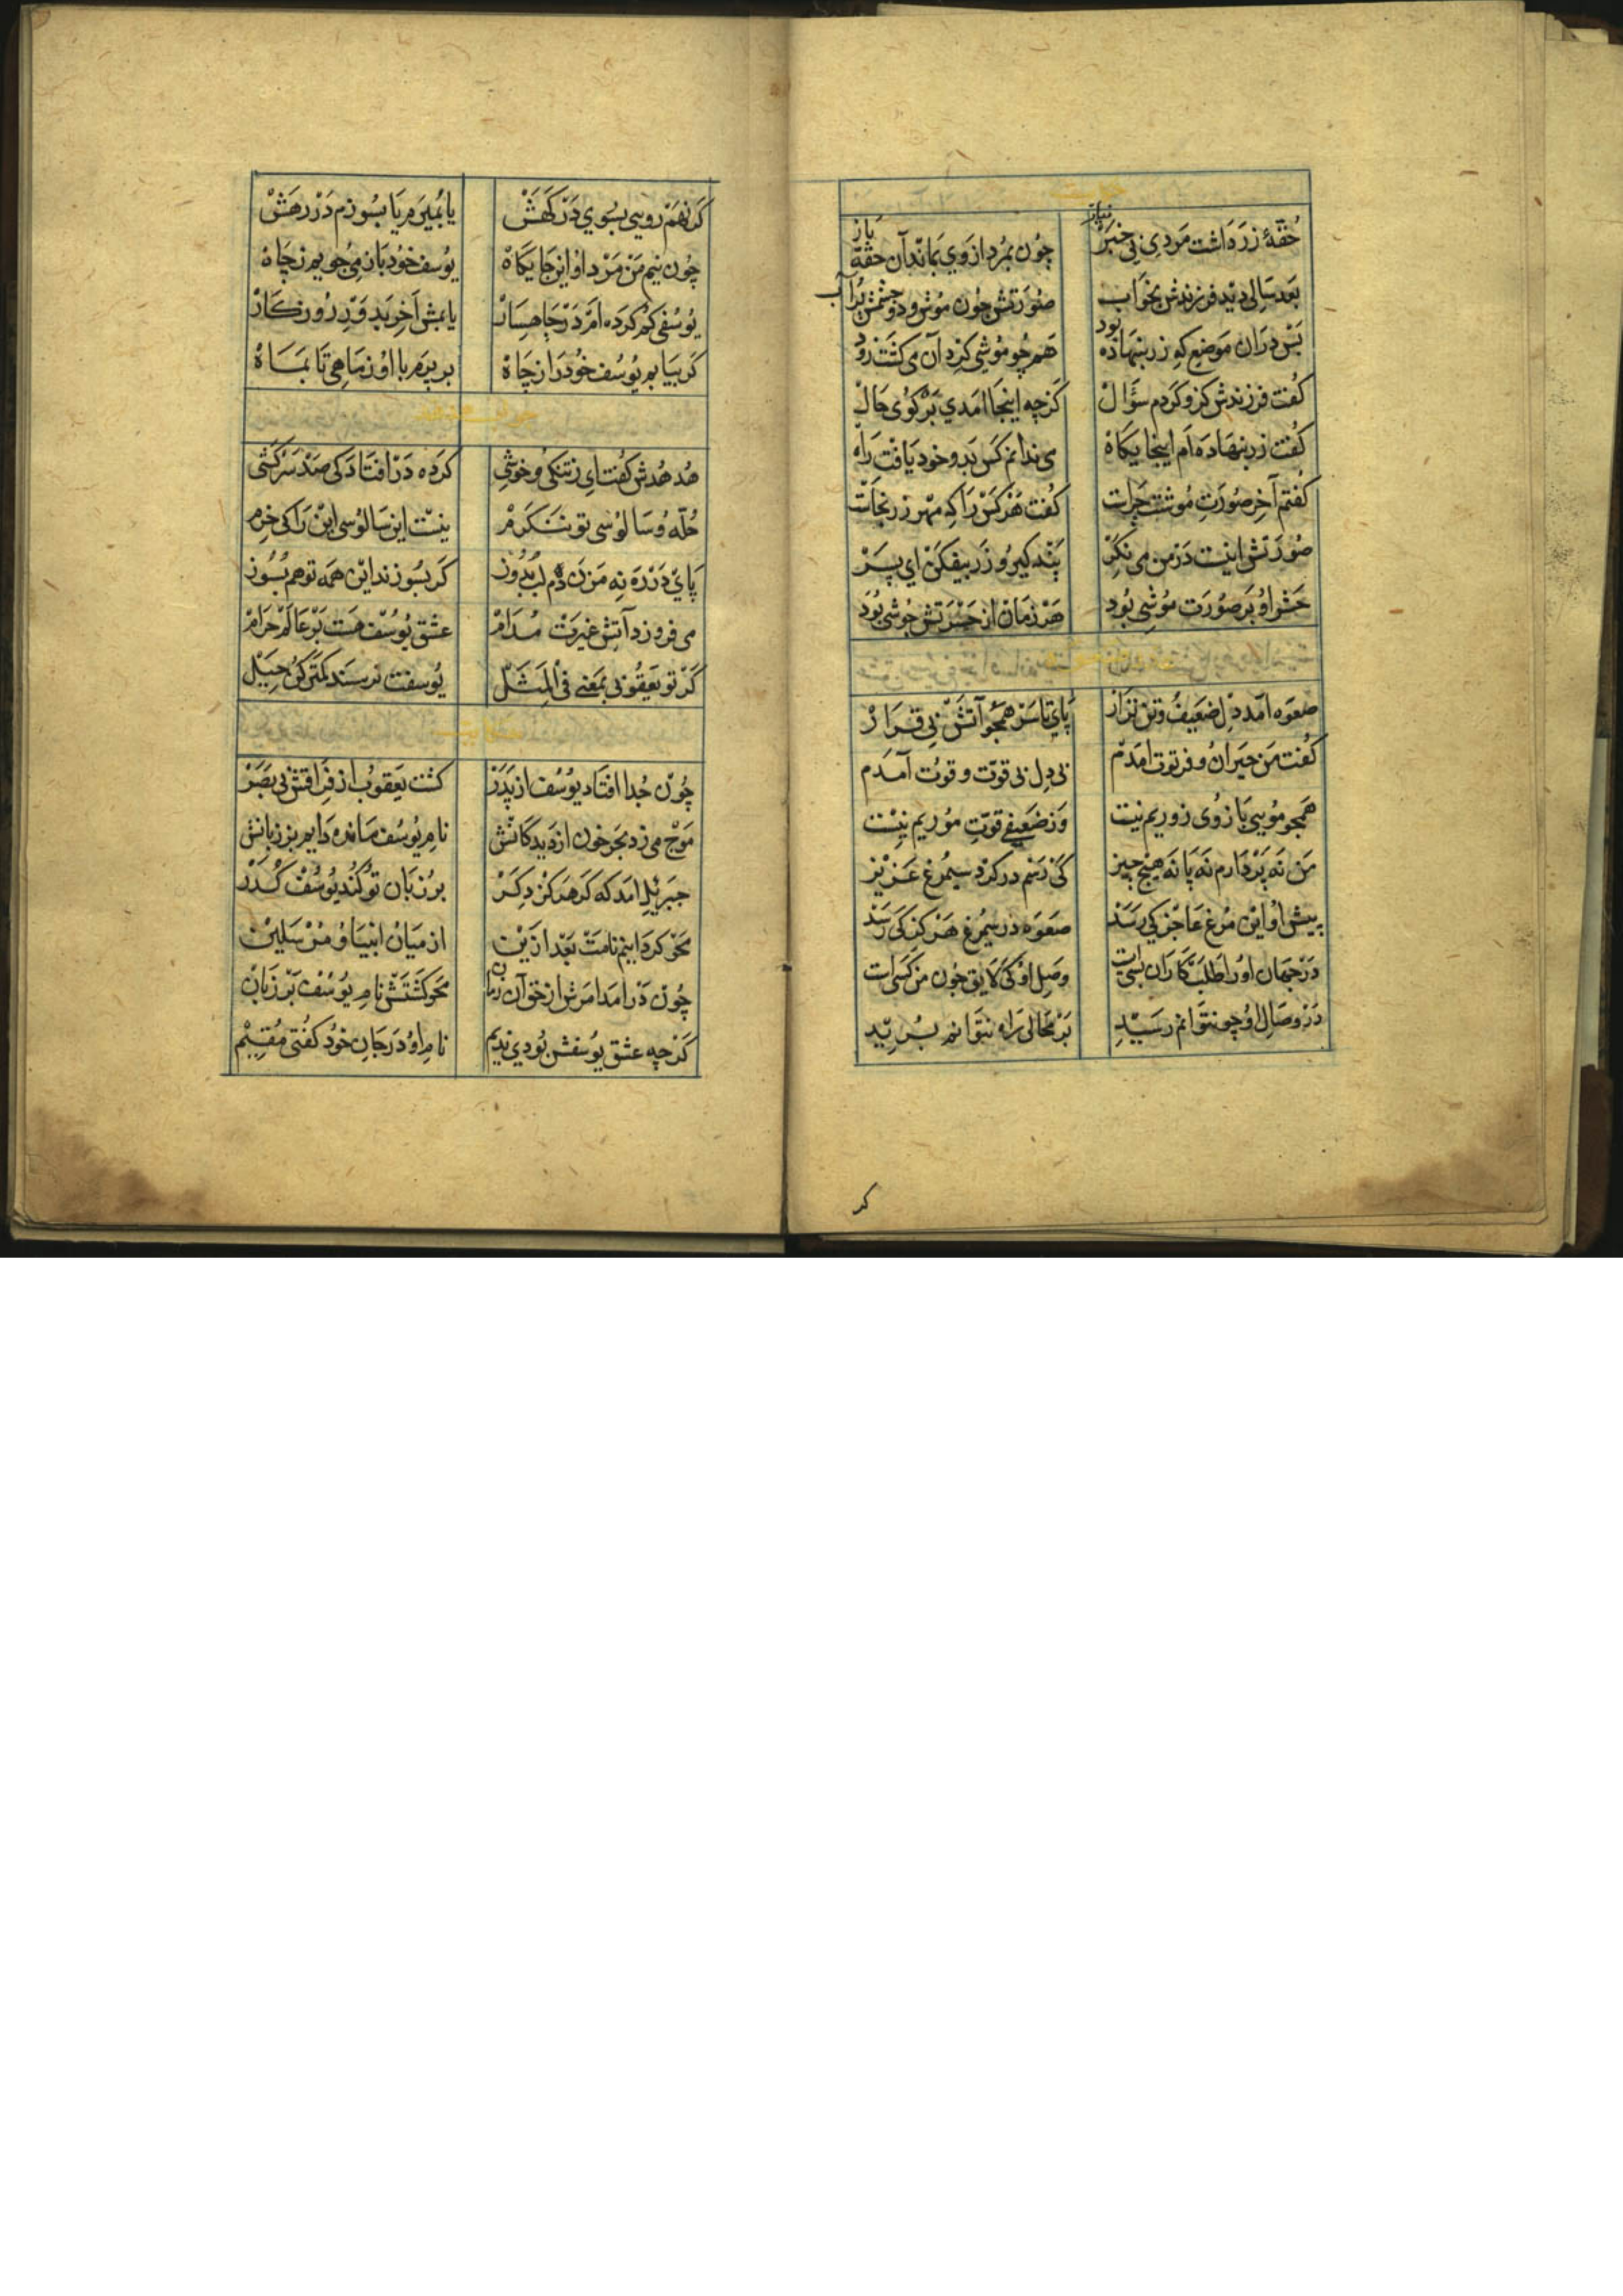 حکایت
حُقّهٔ زر داشت مردی بی خبر نیاز چون بمُرد از وی بماند آن حقّه باز
بعد سالی دید فرزندش بخواب صورتش چون موش و دو چشمش پُر آب
پس در آن موضع که زر بنهاده بود همچو موشی گرد آن می کشت زود
کفت فرزندش کزو کردم سؤال کز چه اینجا آمدی بر کوی حال
کفت زر بنهاده ام اینجایکاه می ندانم کس بدو خود یافت راه
کفتم آخر صورت موشت چراست کفت هر کس را که مهر زر بخاست
صورتش اینست در من می نکر پند کیر و زر بیفکن ای پسر
حشر او بر صورت موشی بود هر زمان از حسرتش جوشی بود
صعوه آمد دل ضعیف و تن نزار پای تا سر همچو آتش بی قرار
کفت من حیران و فرتوت آمدم بی دل بی قوّت و قوت آمدم
همچو مویی بازوی زوریم نیست وز ضعیفی قوّت موریم نیست
من نه پر دارم نه پا نه هیچ چیز کی رسم در کرد سیمرغ عزیز
پیش او این مرغ عاجز کی رسد صعوه در سیمرغ هرکز کی رسد
در جهان او را طلبکاران بسیست وصل او کی لایق چون من کسی است
در وصال او چو نتوانم رسید بر محالی راه نتوانم برید
کر
کر نهم رویی بسوی درکهش یا بمیرم یا بسوزم در رهش
چون نیم من مرد او این جایکاه یوسف خود باز می جویم ز چاه
یوسفی کم کرده ام در چاهسار یابمش آخر بدو در روزکار
کر بیابم یوسف خود را ز چاه بر پرم با او ز ماهی تا بماه
جواب هدهد
هدهدش کفت ای ز تنکی و خوشی کرده در افتادکی صد سرکشی
حُلّه و سالوسی تو ننکرم نیست این سالوسی این را کی خرم
پای در ره نه مزن دم لب بدوز کر بسوزند این همه تو هم بسوز
می فروزد آتش غیرت مدام عشق یوسف هست بر عالم حرام
کر تو یعقوبی بمعنی فی المثل یوسفت نرسند کمتر کن حیل
حکایت
چون جدا افتاد یوسف از پدر کشت یعقوب از فراقش بی بصر
موج می زد بحر خون از دیدکانش نام یوسف مانده دایم بر زبانش
جبرئیل آمد که کر هرکز دکر بر زبان تو کند یوسف کذر
محو کردانیم نامت بعد ازین از میان انبیا و مرسلین
چون در آمد امرش از حق آن زمان محو کشتش نام یوسف بر زبان
کر چه عشق یوسفش بودی ندیم نام او در جان خود کفتی مقیم